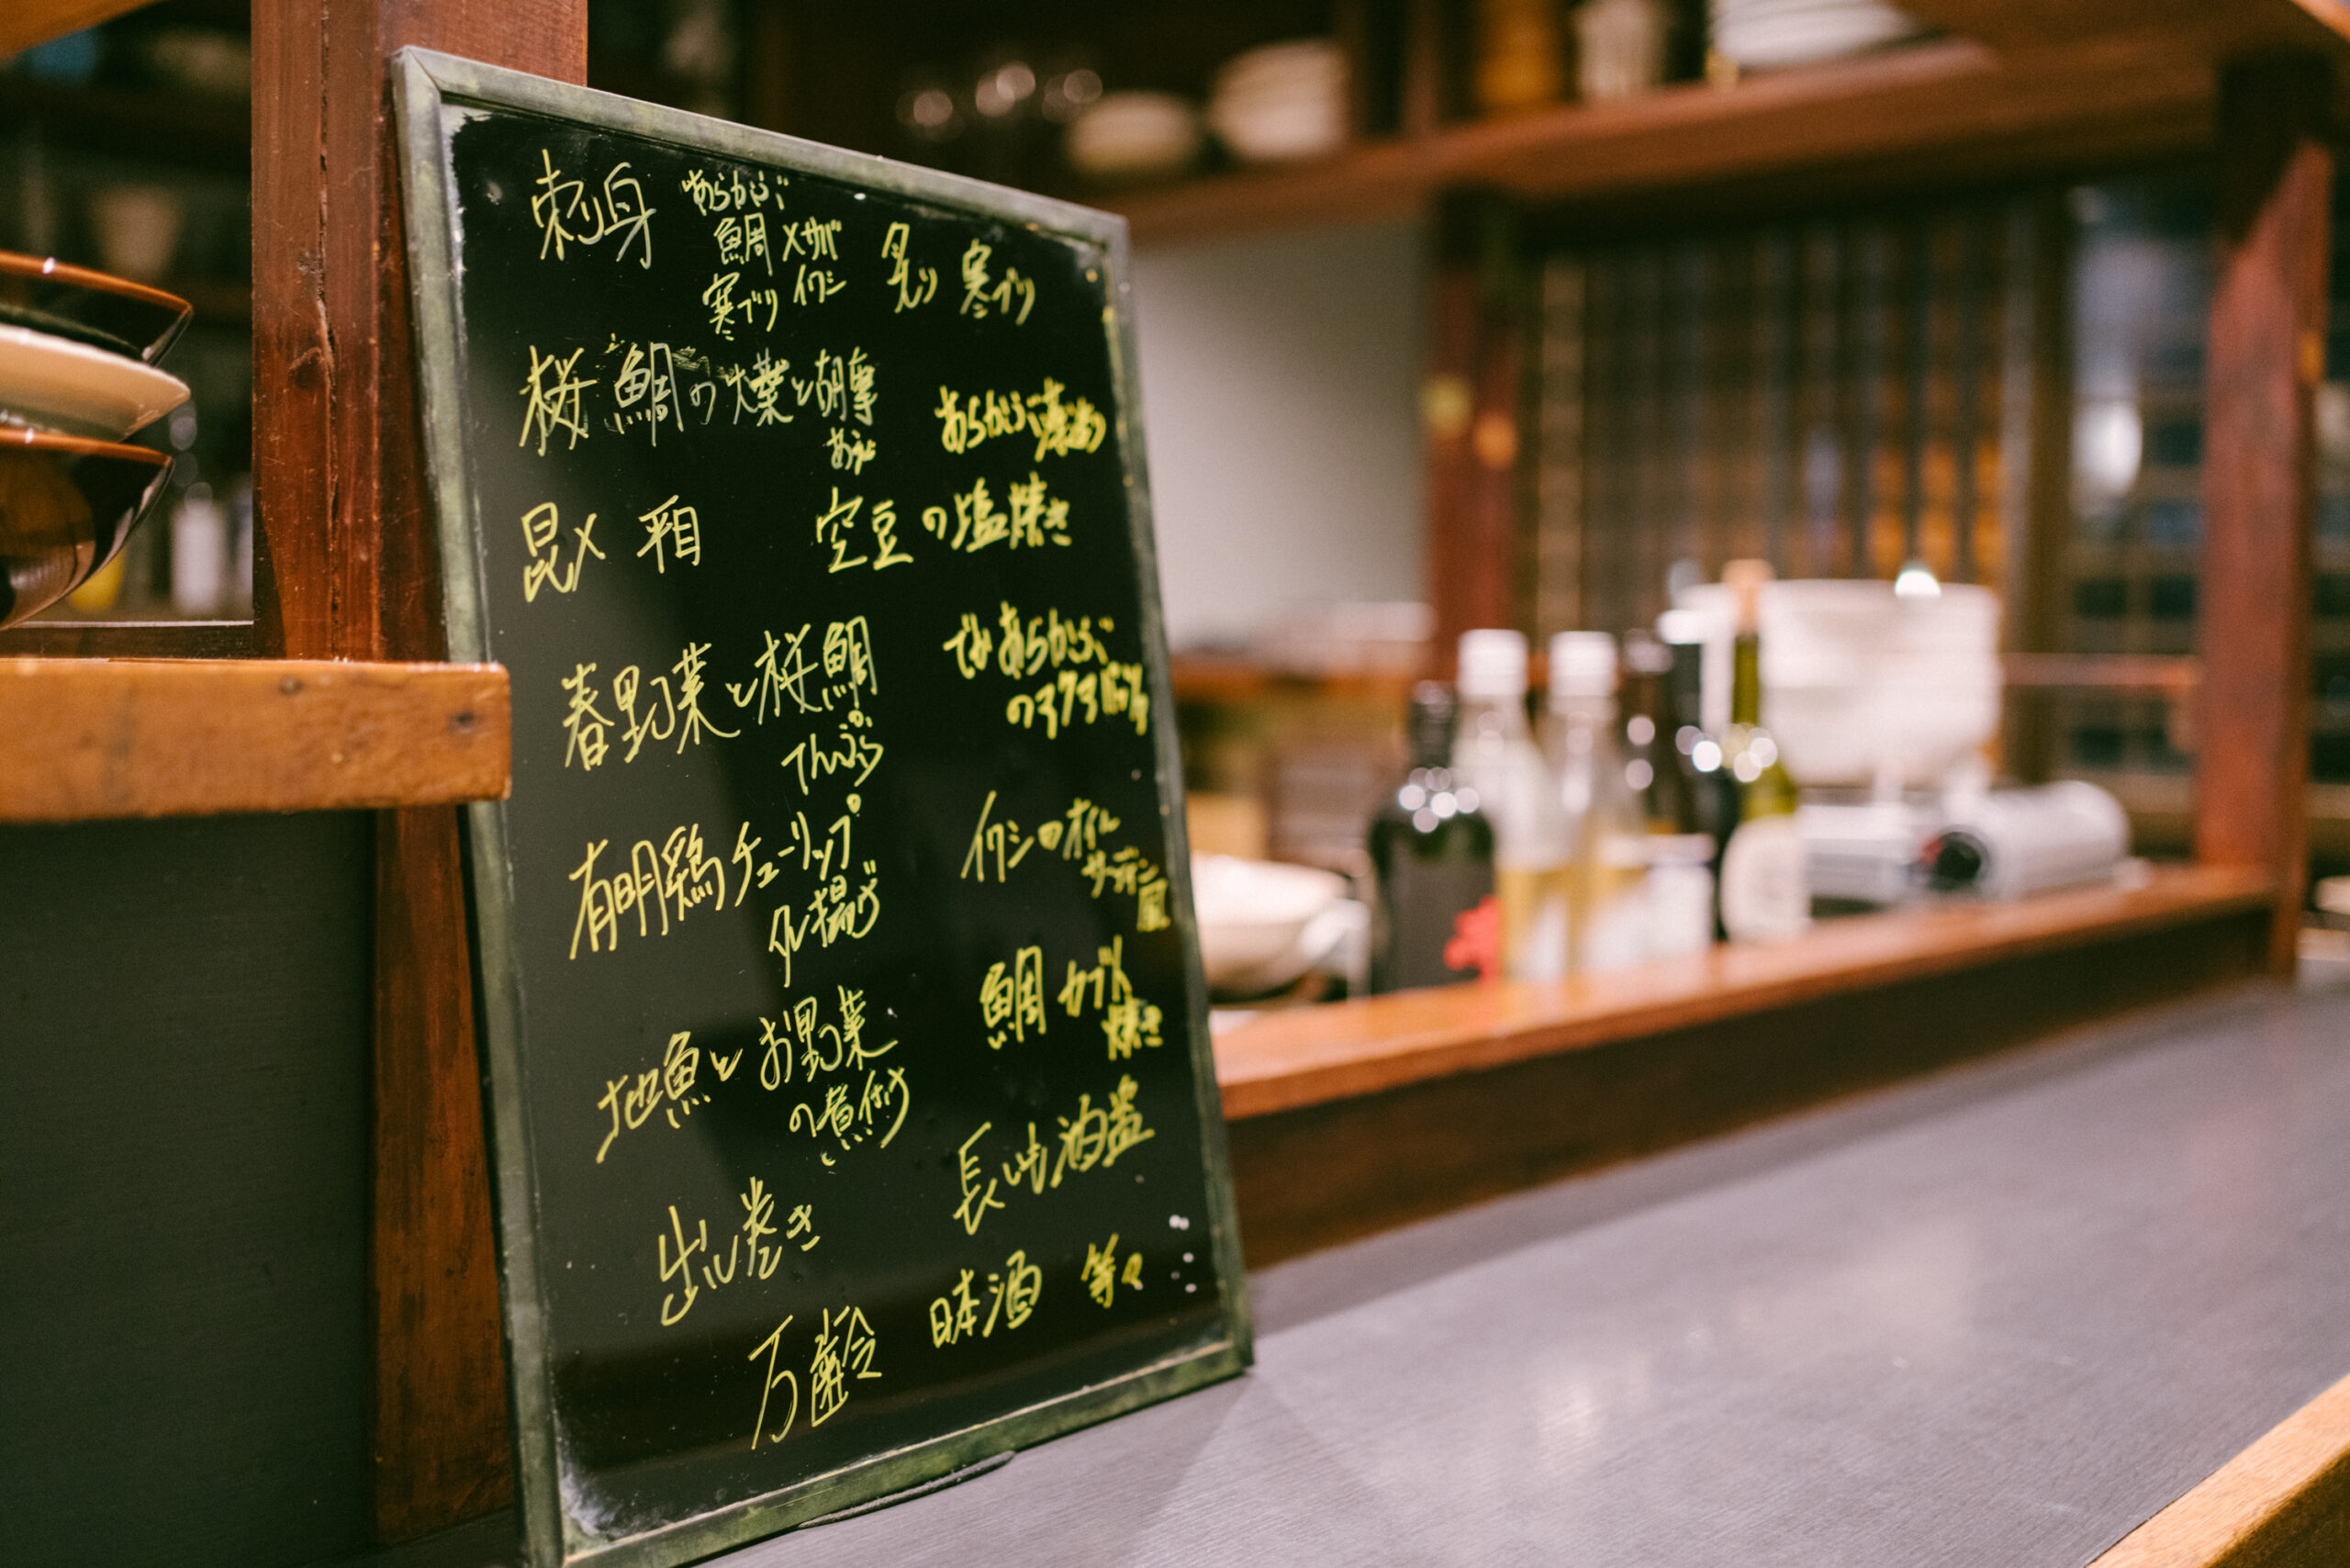 刺身 あらかぶ 鯛 〆サバ 寒ブリ イワシ
炙り 寒ブリ
桜鯛の 葉と胡麻
あえ
あらかぶ 煮
昆〆
空豆の塩焼き
春野菜と桜鯛
てんぷら
あらかぶ
のアクアパッツァ
有明鶏チューリップ
揚げ
イワシのオイル
サーディン
風
地魚とお野菜
の煮付け
鯛 カブト
焼き
出し巻き
長いも
万齢 日本酒 等々